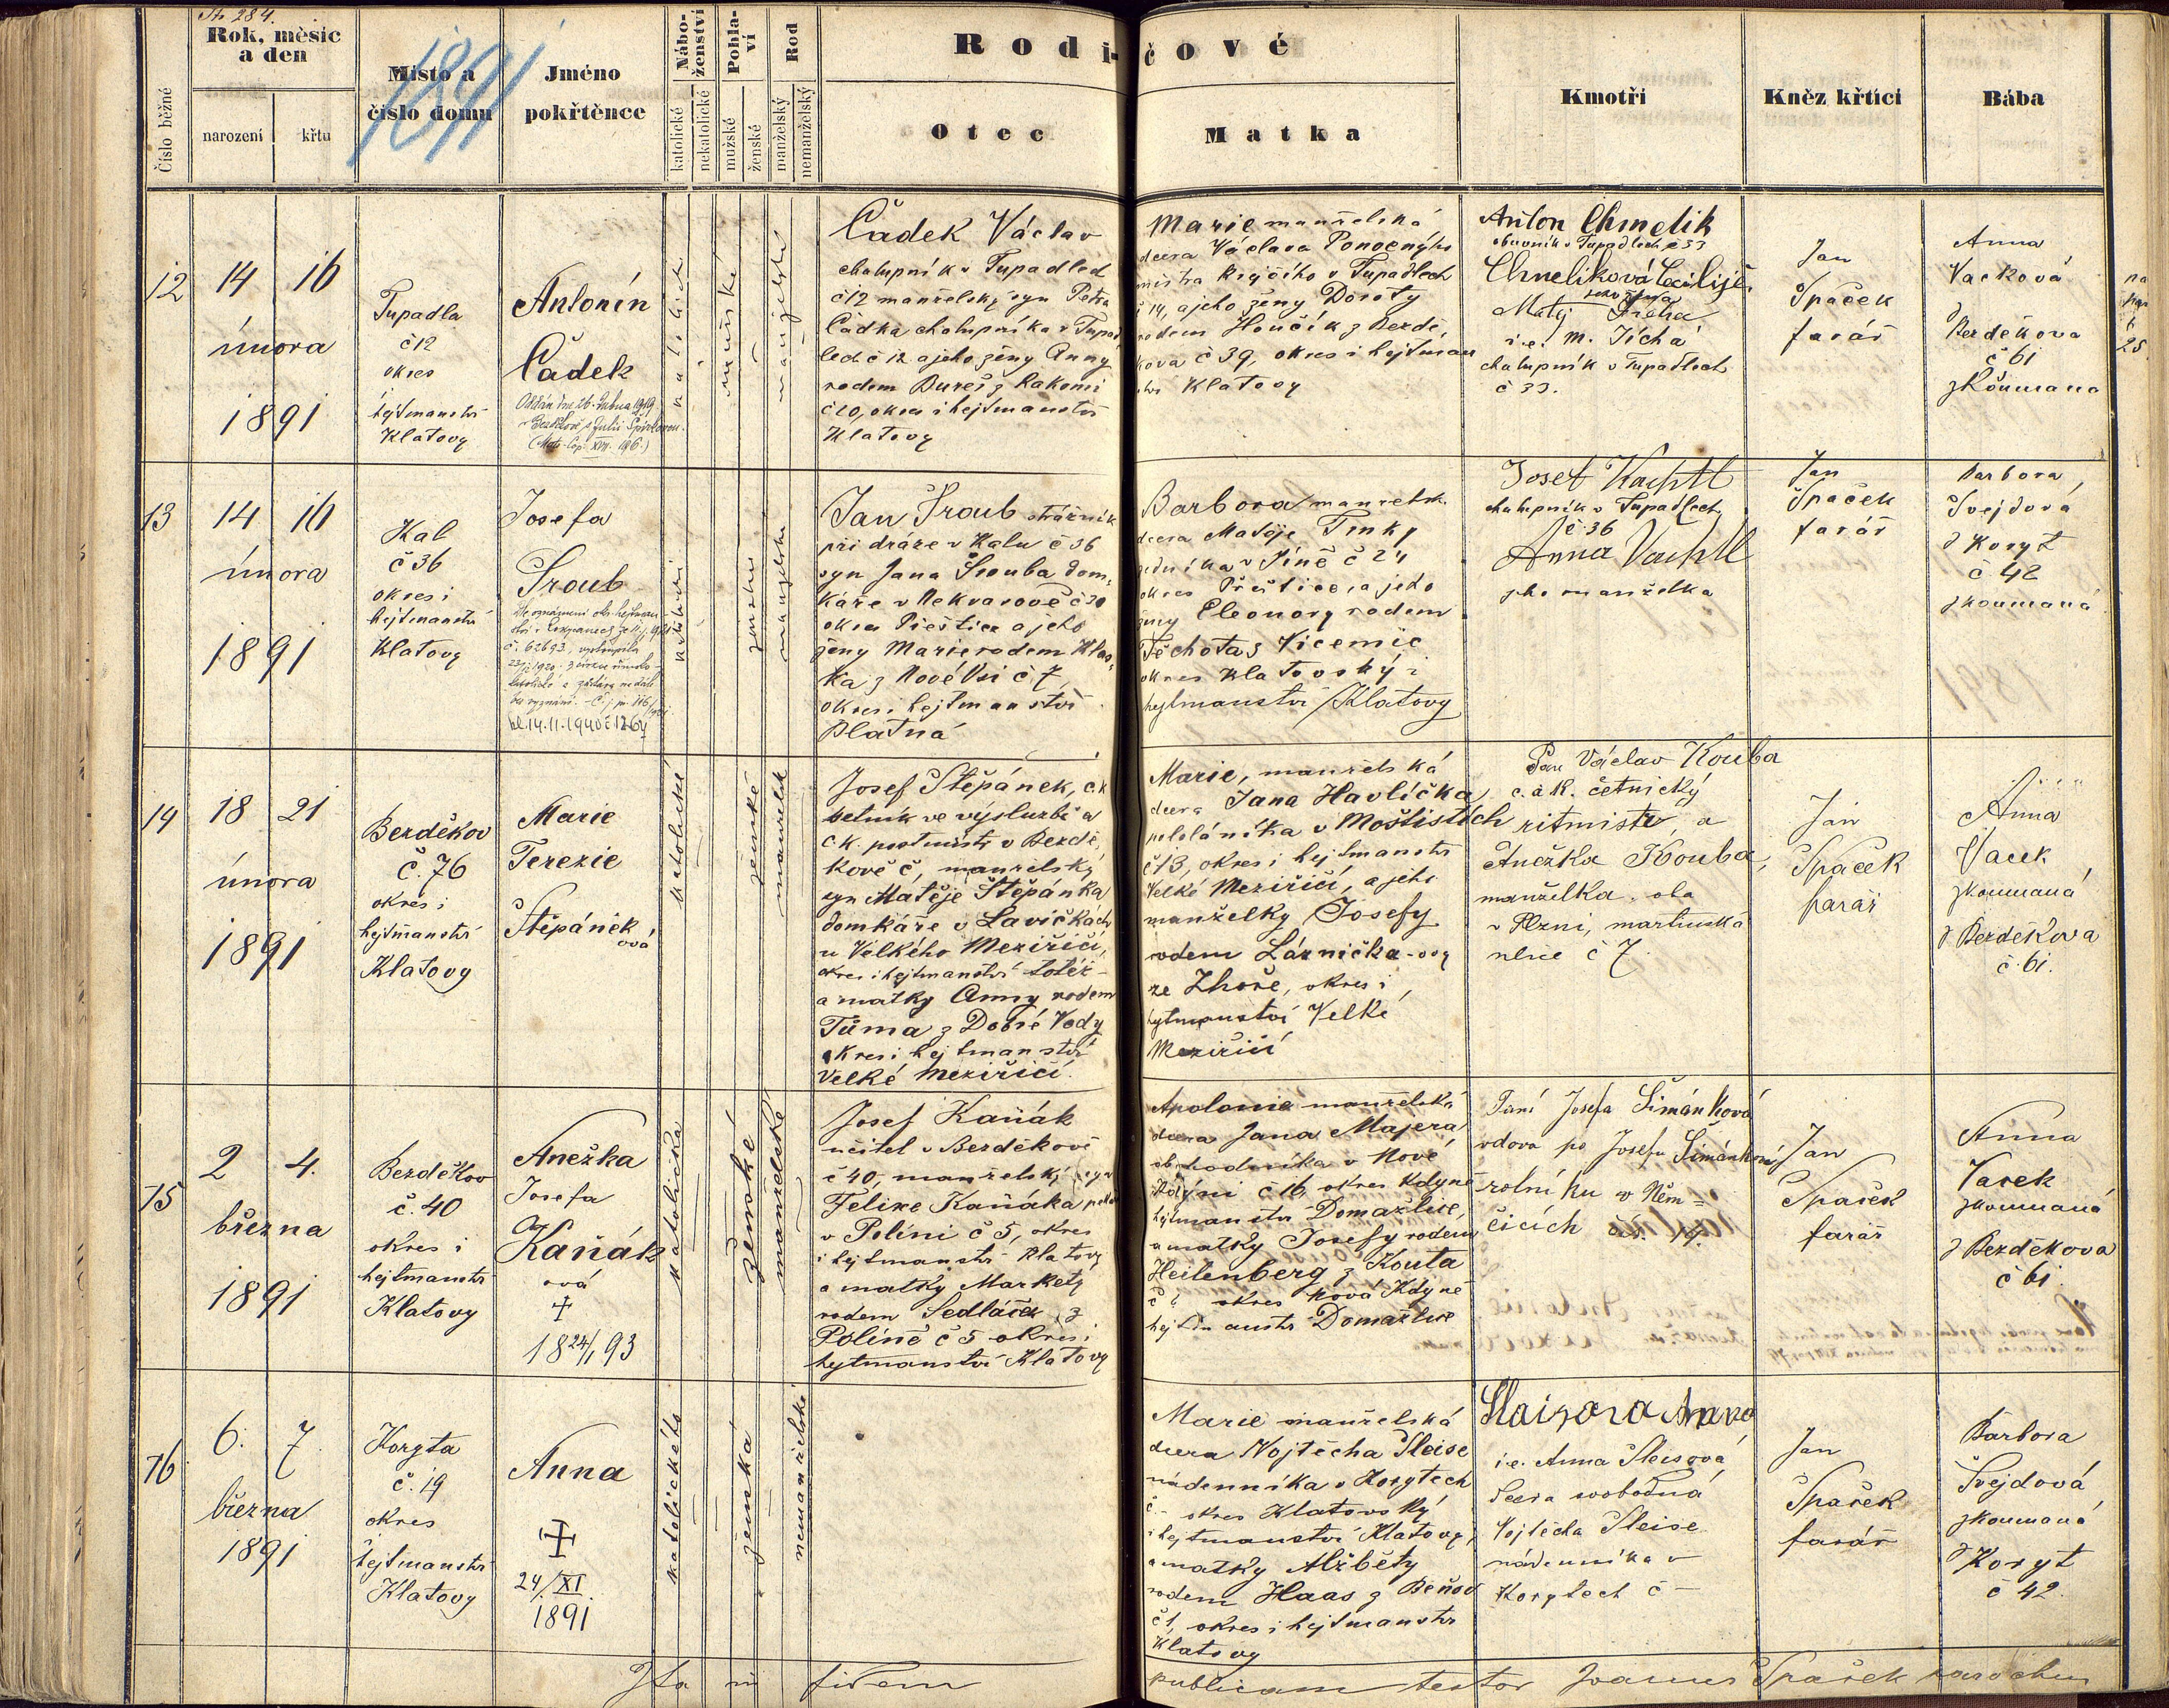 St. 284.
1891
Číslo běžné
Rok, měsíc
a den
narození
křtu
Místo a
číslo domu
Jméno
pokřtěnce
Nábo-
ženství
katolické
nekatolické
Pohla-
ví
mužské
ženské
Rod
manželský
nemanželský
Rodi-
čové
Otec
Matka
Kmotři
Kněz křtící
Bába
12
14 16
února
1891
Tupadla
č 12
okres
i
hejtmanství
Klatovy
Antonín
Čadek
katolické
mužské
manželské
Čadek Václav
chalupník v Tupadlech
č 12 manželský syn Petra
Čadka chalupníka v Tupad
lech č 12 a jeho ženy Anny
rodem Bureš z Rakomi
č 20, okres i hejtmanství
Klatovy
Marie manželská
dcera Václava Ponocnýho
mistra krejčího v Tupadlech
č 14, a jeho ženy Doroty
rodem Houčík z Bezdě,
kova č 39, okres i hejtman
ství Klatovy
Anton Chmelik
obuvník v Tupadlech č 33
Chmelíková Cecilije
jeho žena
Matěj
i.e. M. Tichá
chalupník v Tupadlech
č 33.
Jan
Špaček
farář
Anna
Vacková
z
Bezděkova
č 61
zkoumaná
13
14 16
února
1891
Kal
č 36
okres i
hejtmanství
Klatovy
Josefa
Šroub
14.11.1940 č 1264
katolické
ženské
manželské
Jan Šroub strážník
při dráze v Kalu č 36
syn Jana Šrouba dom,
káře v Nekvasově č 30
okres Přeštice a jeho
ženy Marie rodem Hlas,
ka z Nové Vsi č 7
okres i hejtmanství
Blatná
Barbora manželsk.
dcera Matěje Trnky
v č 24
okres Přeštice, a jeho
ženy Eleonory rodem
Těchota z Vícenic
okres klatovský i
hejtmanství Klatovy
Josef Vachtl
chalupník v Tupadlech
č. 36
Anna Vachtl
jeho manželka
Jan
Špaček
farář
Barbora,
Švejdová
z Koryt
č 42
zkoumaná
14
18 21
února
1891
Bezděkov
č. 76
okres i
hejtmanství
Klatovy
Marie
Terezie
Štěpánek
ová
katolické
ženské
manželsk
Josef Štěpánek, c.k
četník ve výslužbě a
c.k. poštmistr v Bezdě,
kově č, manželský
syn Matěje Štěpánka
domkáře v Lavičkách
u Velkého Meziřičí,
okres i hejtmanství totéž -
a matky Anny rodem
Tůma z Dobré Vody
okres i hejtmanství
Velké Meziřičí.
Marie, manželská
dcera Jana Havlíčka
pololáníka v Moštištích
č 13, okres i hejtmanství
Velké Meziřičí, a jeho
manželky Josefy
rodem Láznička-ovy
ze Zhoře, okres i
hejtmanství Velké
Meziřičí
Pan Václav Kouba
c. a k. četnický
ritmistr, a
Anežka Kouba,
manželka. oba
v Plzni, martinská
ulice č 7.
Jan
Špaček
farář
Anna
Vacek
zkoumaná
z Bezděkova
č. 61.
15
2 4.
března
1891
Bezděkov
č. 40
okres i
hejtmanství
Klatovy
Anežka
Josefa
Kaňák
ová
+
18 24/1 93
katolička
ženské
manželské
Josef Kaňák
učitel v Bezděkově
č 40, manželský syn
Felixe Kaňáka
v Políni č 5, okres
i hejtmanství Klatovy
a matky Markety
rodem Sedláček z
Políně č 5 okres i
hejtmanství Klatovy
Apolonie manželská
dcera Jana Majera
obchodníka v Nové
Kdyni č 16, okres Kdyně
hejtmanství Domažlice,
a matky Josefy rodem
Heilenberg z Kouta
č okres Nová Kdyně
hejtmanství Domažlice
Paní Josefa Šimánková
vdova po Josefu Šimánkovi
rolníku v Něm=
čicích čís. 14.
Jan
Špaček
farář
Anna
Vacek
zkoumaná
z Bezděkova
č 61.
16
6. 7.
března
1891
Koryta
č. 19
okres
i
hejtmanství
Klatovy
Anna
+
24/XI.
1891
katolického
ženská
nemanželské
Marie manželská
dcera Vojtěcha Sleise
nádenníka v Korytech
č - okres Klatovský
i hejtmanství Klatovy,
a matky Alžběty
rodem Haas z Beňov
č 1, okres i hejtmanství
Klatovy
Anna
i.e. Anna Sleisová
dcera svobodná
Vojtěcha Sleise
nádenníka v
Korytech č -
Jan
Špaček
farář
Barbora
Švejdová
zkoumaná
z Koryt
č 42.
Ita in fidem
publicam testor Joannes Špaček parochus